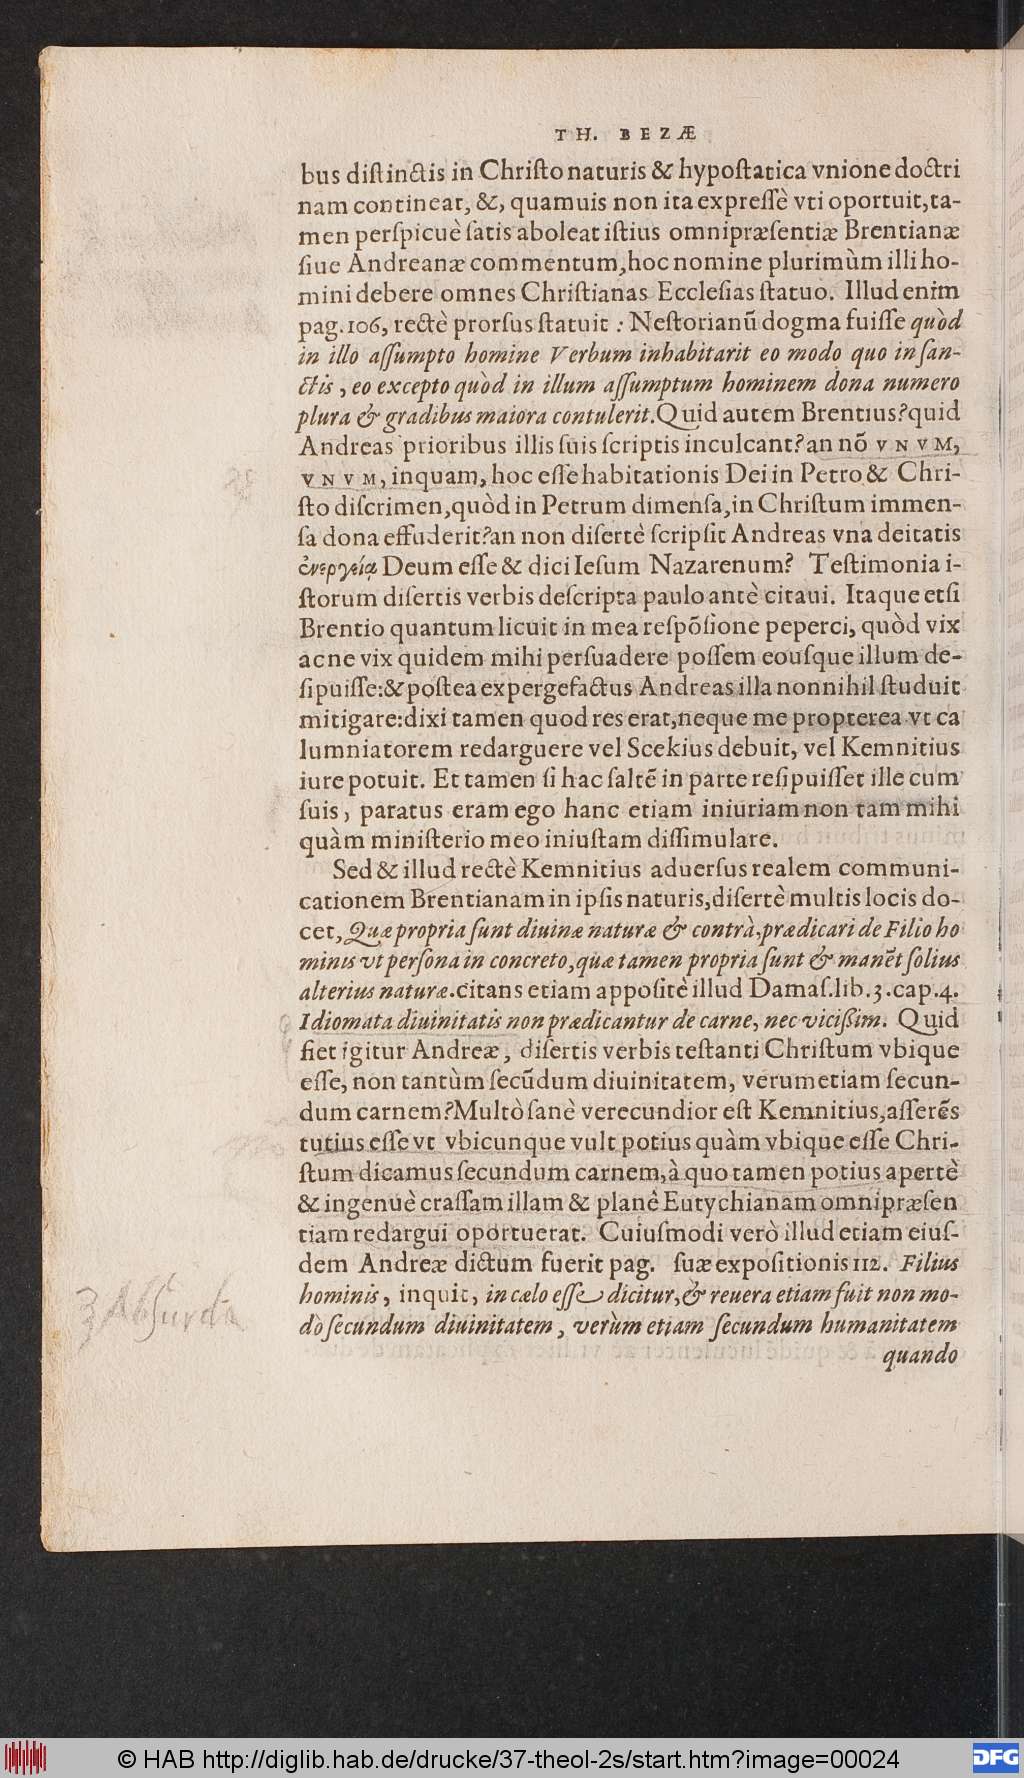 TH. BEZÆ
bus distinctis in Christo naturis & hypostatica vnione doctri
nam contineat, &, quamuis non ita expressè vti oportuit, ta-
men perspicuè satis aboleat istius omnipræsentiæ Brentianæ
siue Andreanæ commentum, hoc nomine plurimùm illi ho-
mini debere omnes Christianas Ecclesias statuo. Illud enim
pag. 106, rectè prorsus statuit : Nestorianũ dogma fuisse quòd
in illo assumpto homine Verbum inhabitarit eo modo quo in san-
ctis, eo excepto quòd in illum assumptum hominem dona numero
plura & gradibus maiora contulerit. Quid autem Brentius? quid
Andreas prioribus illis suis scriptis inculcant? an nõ VNVM,
VNVM, inquam, hoc esse habitationis Dei in Petro & Chri-
sto discrimen, quòd in Petrum dimensa, in Christum immen-
sa dona effuderit? an non disertè scripsit Andreas vna deitatis
ἐνεργείᾳ Deum esse & dici Iesum Nazarenum? Testimonia i-
storum disertis verbis descripta paulo antè citaui. Itaque etsi
Brentio quantum licuit in mea respõsione peperci, quòd vix
ac ne vix quidem mihi persuadere possem eousque illum de-
sipuisse: & postea expergefactus Andreas illa nonnihil studuit
mitigare: dixi tamen quod res erat, neque me propterea vt ca
lumniatorem redarguere vel Scekius debuit, vel Kemnitius
iure potuit. Et tamen si hac saltẽ in parte resipuisset ille cum
suis, paratus eram ego hanc etiam iniuriam non tam mihi
quàm ministerio meo iniustam dissimulare.
Sed & illud rectè Kemnitius aduersus realem communi-
cationem Brentianam in ipsis naturis, disertè multis locis do-
cet, Quæ propria sunt diuinæ naturæ & contrà, prædicari de Filio ho
minis vt persona in concreto, quæ tamen propria sunt & manẽt solius
alterius naturæ. citans etiam appositè illud Damas. lib. 3. cap. 4.
Idiomata diuinitatis non prædicantur de carne, nec vicißim. Quid
fiet igitur Andreæ, disertis verbis testanti Christum vbique
esse, non tantùm secũdum diuinitatem, verumetiam secun-
dum carnem? Multò sanè verecundior est Kemnitius, asserẽs
tutius esse vt vbicunque vult potius quàm vbique esse Chri-
stum dicamus secundum carnem, à quo tamen potius apertè
& ingenuè crassam illam & planè Eutychianam omnipræsen
tiam redargui oportuerat. Cuiusmodi verò illud etiam eius-
dem Andreæ dictum fuerit pag. suæ expositionis 112. Filius
hominis, inquit, in cælo esse dicitur, & reuera etiam fuit non mo-
dò secundum diuinitatem, verùm etiam secundum humanitatem
quando
3 Absurda
© HAB http://diglib.hab.de/drucke/37-theol-2s/start.htm?image=00024
DFG